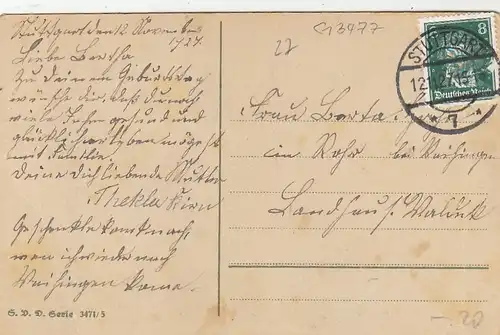 Stuttgart den 12 November
1927.
Liebe Bertha
Zu deinem Geburtstag
wünsche dir, daß du noch
viele Jahre gesund und
glücklich erleben mögest
mit Familie.
Deine Dich liebende Mutter
Thekla
Geschenkle komt nach,
wen ich wieder nach
Vaihingen kome.
S. V. D. Serie 3471/5
27
G13477
STUTTGART
12.
7
8
Deutsches Reich
Frau Berta
in Rohr bei Vaihingen
Landhaus Waldeck
- 20